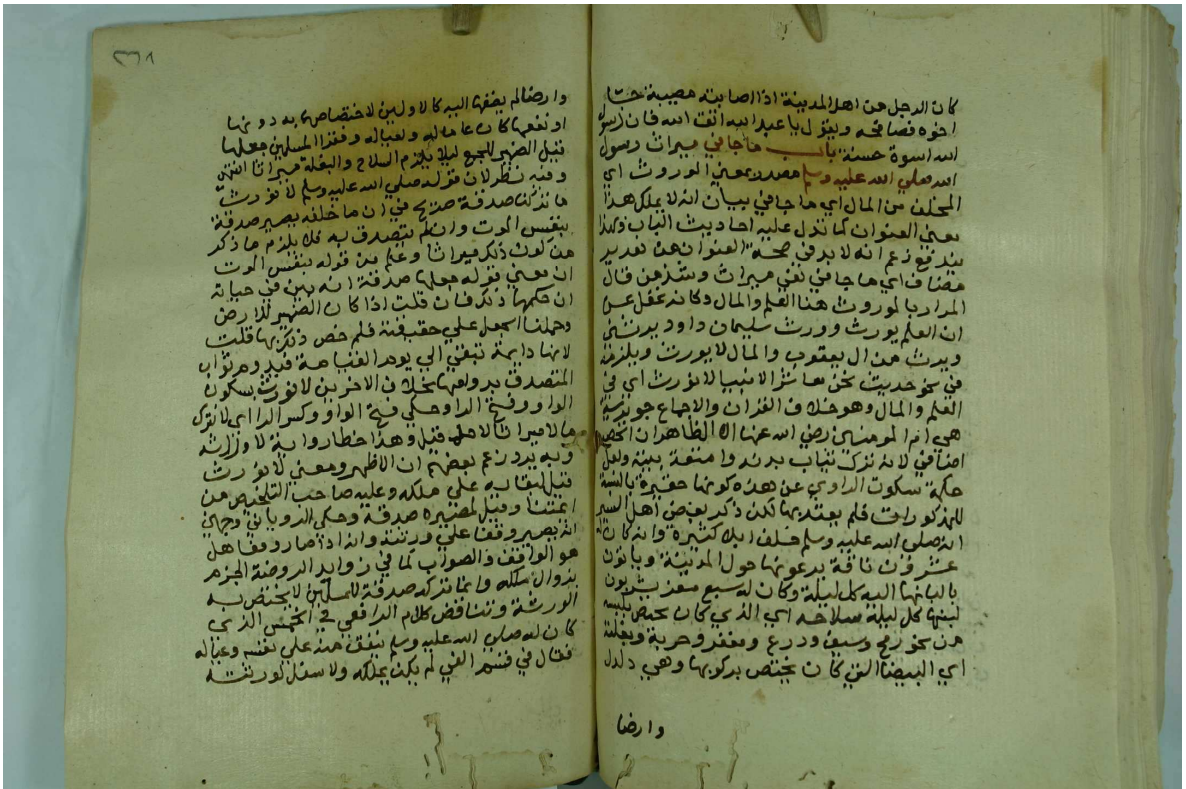 كان الرجل من اهل المدينة اذا اصابته مصيبة جا
اخوه فصافحه ويقول يا عبد الله اتق الله فان في رسول
الله اسوة حسنة باب ما جا في ميراث رسول
الله صلي الله عليه وسلم مصدر بمعني الموروث اي
المخلف من المال اي ما جا في بيان انه لا يملك هذا
معني العنوان كما تدل عليه احاديث الباب وبهذا
يندفع زعم انه لا بد في صحة العنوان من تقدير
مضاف اي ما جا في نفي ميراث وشذ من قال
المراد بالموروث هنا العلم والمال وكانه غفل عن
ان العلم يورث وورث سليمان داود يرثني
ويرث من ال يعقوب والمال لا يورث ويلزمه
في نحو حديث نحن معاشر الانبيا لا نورث اي في
العلم والمال وهو خلاف القران والاجماع جويرية
هي ام المومنين رضي الله عنها الا الظاهر ان الحصر
اضافي لانه ترك ثياب بدنه وامتعة بيته ولعل
حكمة سكوت الراوي عن هذه كونها حقيرة بالنسبة
للمذكورات فلم يعتد بها لكن ذكر بعض اهل السير
انه صلي الله عليه وسلم خلف ابلا كثيرة وانه كان له
عشرون ناقة يرعونها حول المدينة وياتون
بالبانها اليه كل ليلة وكان له سبع معز يشربون
لبنها كل ليلة سلاحه اي الذي كان يختص بلبسه
من نحو رمح وسيف ودرع ومغفر وحربة وبغلته
اي البيضا التي كان يختص بركوبها وهي دلدل
وارضا
٣٣٨
وارضا لم يضفها اليه كالاولين لاختصاصها به دونها
اذ نفعها كان عاما له ولعياله وفقرا المسلمين جعلها
قيل الضمير للجميع ليلا يلزم السلاح والبغلة ميراثا انتهي
وفيه نظر لان قوله صلي الله عليه وسلم لا نورث
ما تركنا صدقة صريح في ان ما خلفه يصير صدقة
بنفس الموت وان لم يتصدق به فلا يلزم ما ذكر
من كون ذلك ميراثا وعلم من قوله بنفس الموت
ان معني قوله جعلها صدقة انه بين في حياته
ان حكمها ذلك فان قلت اذا كان الضمير للارض
وحملنا الجعل علي حقيقته فلم خص ذلك بها قلت
لانها دايمة تبقي الي يوم القيامة فيدوم ثواب
المتصدق بدوامها بخلاف الاخرين لا نورث بسكون
الواو وفتح الرا وحكي فتح الواو وكسر الرا اي لا نترك
مالا ميراثا لاهله قيل وهذا خطا رواية لا دراية
وبه يرد زعم بعضهم ان الاظهر ومعني لا نورث
قيل لبقايه علي ملكه وعليه صاحب التلخيص من
ايمتنا وقيل لمصيره صدقة وحكي الروياني وجهين
انه يصير وقفا علي ورثته وانه اذا صار وقفا هل
هو الواقف والصواب كما في زوايد الروضة الجزم
بزوال ملكه وانما تركه صدقة للمسلمين لا يختص به
الورثة وتناقض كلام الرافعي في الخمس الذي
كان له صلي الله عليه وسلم ينفق منه علي نفسه وعياله
فقال في قسم الفي لم يكن يملكه ولا ينتقل لورثته